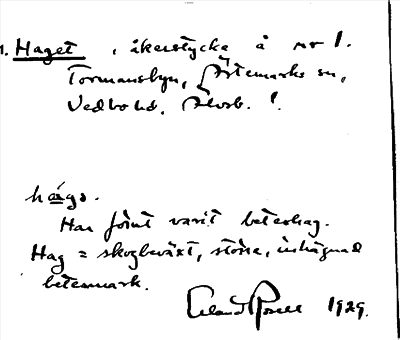 1. Haget, åkerstycke å nr 1.
Tormansbyn, Ärtemarks sn,
Vedbo hd, Älvsb. l.
hágə.
Har förut varit beteshag.
Hag = skogbeväxt, större, inhägnad
betesmark.
Erland Rosell 1929.